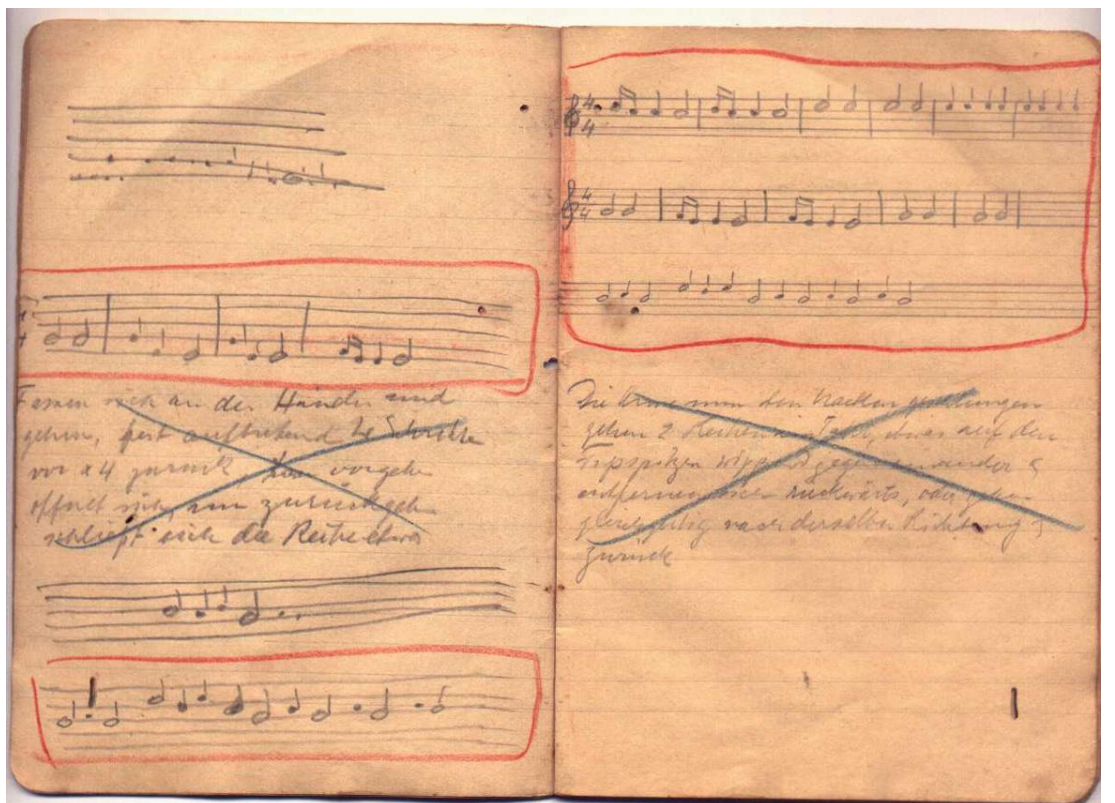 4
4
Fassen sich an den Händen und
gehen, fest auftretend 4 Schritte
vor x 4 zurück vorgehen
öffnet sich, am zurückgehen
schließt sich die Reihe etwas
4
4
4
4
Die Arme um den Nacken
gehen 2 Reihen im Takt, etwas auf den
wippend gegeneinander &
rückwärts, oder gehen
gleichzeitig nach derselben Richtung &
zurück